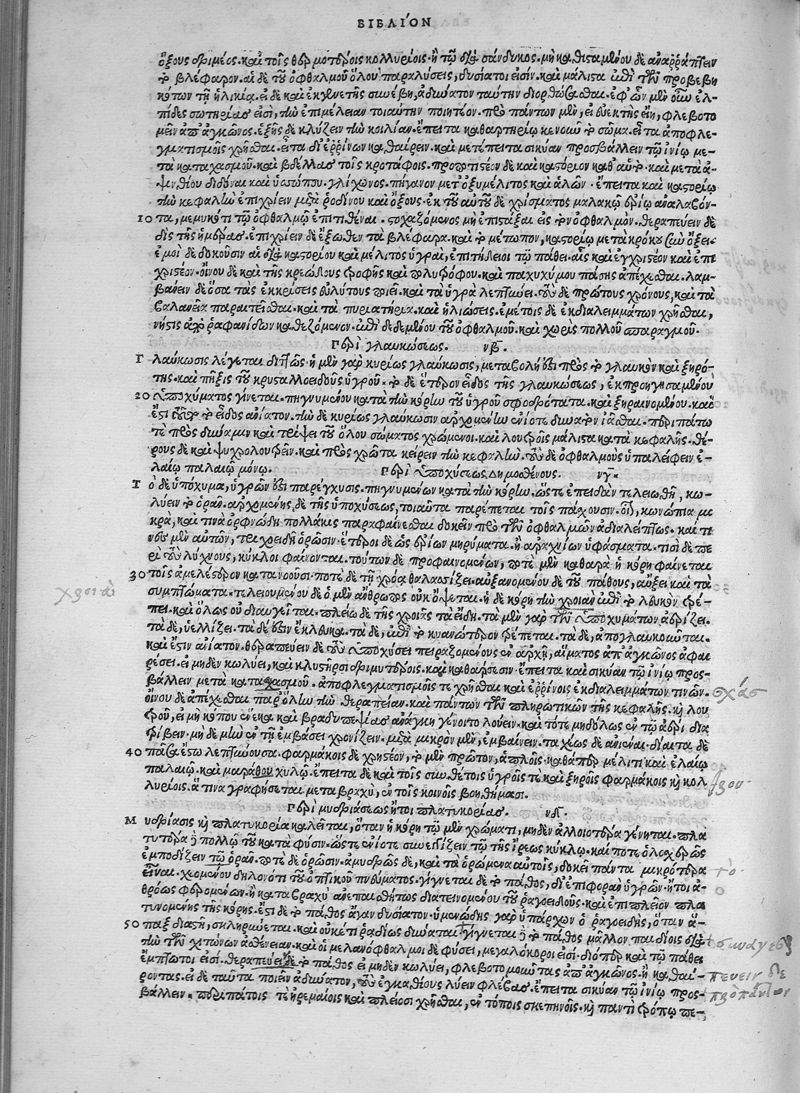 ΒΙΒΛΙΌΝ
ὄξους δριμέος. καὶ τοῖς θερμοτέροις κολλυρίοις. ἢ τῷ διὰ σάνδυκος. μὴ καθισταμένου δὲ ἀναῤῥάπτειν
τὸ βλέφαρον. αἱ δὲ τοῦ ὀφθαλμοῦ ὅλου παραλύσεις, δυσίατοι εἰσίν. καὶ μάλιστα ἐπὶ τῶν προβεβη
κότων τῇ ἡλικίᾳ. εἰ δὲ καὶ ἐκ γενετῆς συμβῇ, ἀδύνατον ταύτην διορθώσασθαι. ἐφ' ὧν μὲν οὖν ἐλ-
πίδες σωτηρίας εἰσὶ, τὴν ἐπιμέλειαν τοιαύτην ποιητέον. πρὸ πάντων μὲν, εἰ εὐεκτὴς εἴη, φλεβοτο
μεῖν ἀπ' ἀγκῶνος. ἑξῆς δὲ κλύζειν τὴν κοιλίαν. ἔπειτα καθαρτηρίῳ κενοῦν τὸ σῶμα. εἶτα ἀποφλε-
γματισμοῖς χρῆσθαι. εἶτα δι' ἐῤῥίνων καθαίρειν. καὶ μετέπειτα σικύαν προσβάλλειν τῷ ἰνίῳ με-
τὰ κατασχασμοῦ. καὶ βδέλλας τοῖς κροτάφοις. προποτιστέον δὲ καὶ καστόριον καθ' αὑτὸ. καὶ μετὰ ἀ-
ψινθίου διδόναι καὶ ὑσσώπου. γλίχωνος. πήγανον μετ' ὀξυμέλιτος καὶ ἁλῶν. ἔπειτα καὶ καστορίῳ
τὴν κεφαλὴν ἐπιχρίειν μετὰ ῥοδίνου καὶ ὄξους. ἐκ τοῦ αὐτοῦ δὲ χρίσματος μαλακῷ ἐρίῳ ἀναλαβόν-
10 τα, μεμυκότι τῷ ὀφθαλμῷ ἐπιτιθέναι. στοχαζόμενος μὴ ἐπιστάξαι εἰς τὸν ὀφθαλμόν. θεραπεύειν δὲ
δὶς τῆς ἡμέρας. ἐπιχρίειν δὲ ἔξωθεν τὰ βλέφαρα. καὶ τὸ μέτωπον, καστορίῳ μετὰ κρόκου σὺν ὄξει.
ἐμοὶ δὲ δοκοῦσιν αἱ διὰ καστορίου καὶ μέλιτος ὑγραὶ, ἐπιτήδειοι τῷ πάθει. αἷς καὶ ἐγχριστέον καὶ ἐπι
χριστέον. οἴνου δὲ καὶ τῆς κρεώδους τροφῆς καὶ πολυτρόφου. καὶ παχυχύμου πάσης ἀπέχεσθαι. λαμ-
βάνειν δὲ ὅσα τὰς ἐκκρίσεις εὐλύτους ποιεῖ. καὶ τὰ ὑγρὰ λεπτύνει. τοὺς δὲ πρώτους χρόνους, καὶ τὰ
βαλανεῖα παραιτεῖσθαι. καὶ τὰ πυριατήρια. καὶ ἡλιώσεις. ἐμέτοις δὲ ἐκ διαλειμμάτων χρῆσθαι,
νήστις ἀπὸ ῥαφανίδων καθεζόμενον. ἐπιδεδεμένου τοῦ ὀφθαλμοῦ. καὶ χωρὶς πολλοῦ σπαραγμοῦ.
Περὶ γλαυκώσεως. νβ.
Γ λαύκωσις λέγεται διττῶς. ἡ μὲν γὰρ κυρίως γλαύκωσις, μεταβολή ἐστι πρὸς τὸ γλαυκὸν καὶ ξηρό-
της. καὶ πῆξις τοῦ κρυσταλλοειδοῦς ὑγροῦ. τὸ δὲ ἕτερον εἶδος τῆς γλαυκώσεως, ἐκ προηγησαμένου
20 ὑποχύματος γίνεται. πηγνυμένου κατὰ τὴν κόρην τοῦ ὑγροῦ σφοδρότατα. καὶ ξηραινομένου. καὶ
ἔστι τοῦτο τὸ εἶδος ἀνίατον. τὴν δὲ κυρίως γλαύκωσιν ἀρχομένην ἐνίοτε δυνατὸν ἰᾶσθαι. περιπάτῳ
τε πρὸς δύναμιν καὶ τρίψει τοῦ ὅλου σώματος χρώμενοι. καὶ λουτροῖς μάλιστα κατὰ κεφαλῆς. θέ-
ρους δὲ καὶ ψυχρολουτρεῖν. καὶ πρὸς χρῶτα κείρειν τὴν κεφαλήν. τοὺς δὲ ὀφθαλμοὺς ὑπαλείφειν ἐ-
λαίῳ παλαιῷ μόνῳ. Περὶ ὑποχύσεως, Δημοσθένους. νγ.
Τ ὸ δὲ ὑπόχυμα, ὑγρῶν ἐστι παρέγχυσις. πηγνυμένων κατὰ τὴν κόρην. ὥστε ἐπειδὰν τελειωθῇ, κω-
λύειν τὸ ὁρᾶν. ἀρχομένης δὲ τῆς ὑποχύσεως, τοιαῦτα παρέπεται τοῖς πάσχουσιν. οἷον, κωνώπια μι
κρὰ, καί τινα ὀρφνώδη πολλάκις παραφαίνεσθαι δοκεῖν πρὸ τῶν ὀφθαλμῶν ἀδιαλείπτως. καί τι
νες μὲν αὐτῶν, τριχοειδῆ ὁρῶσιν. ἕτεροι δὲ ὡς ἐρίων μηρύματα. ἢ ἀραχνίων ὑφάσματα. τισὶ δὲ πε
ρὶ τοὺς λύχνους, κύκλοι φαίνονται. τούτων δὲ προφαινομένων, ποτὲ μὲν καθαρὰ ἡ κόρη φαίνεται
30 τοῖς ἀμελέστερον κατανοοῦσι. ποτὲ δὲ τῇ χρόᾳ θαλασσίζει. αὐξανομένου δὲ τοῦ πάθους, αὔξει καὶ τὰ
συμπτώματα. τελειουμένου δὲ ὁ μὲν ἄνθρωπος οὐκ ὄψεται. ἡ δὲ κόρη τὴν χροιὰν ἐπὶ τὸ λευκὸν τρέ-
πει. καὶ ὅλως οὐ διαυγεῖται. πλείω δὲ τῆς χροιᾶς τὰ εἴδη. τὰ μὲν γὰρ τῶν ὑποχυμάτων ἀερίζει.
τὰ δὲ, ὑελλίζει. τὰ δέ ἐστιν ἔκλευκα. τὰ δὲ, ἐπὶ τὸ κυανώτερον τρέπεται. τὰ δὲ, ἀπογλαυκοῦται.
καὶ ἔστιν ἀνίατον. θεραπεύειν δὲ τοὺς ὑποχύσει πειραζομένους ἐν ἀρχῇ, αἵματος ἀπ' ἀγκῶνος ἀφαι
ρέσει. εἰ μηδὲν κωλύει, καὶ κλυστῆρσι δριμυτέροις. καὶ καθάρσεσιν. ἔπειτα καὶ σικύαν τῷ ἰνίῳ προσ-
βάλλειν μετὰ κατασχασμοῦ. ἀποφλεγματισμοῖς τε χρῆσθαι καὶ ἐῤῥίνοις ἐκ διαλειμμάτων τινῶν.
οἴνου δὲ ἀπέχεσθαι παρ' ὅλην τὴν θεραπείαν. καὶ πάντων τῶν πληρωτικῶν τῆς κεφαλῆς. καὶ λου
τροῦ, εἰ μὴ κόπου ἕνεκα. καὶ βραδυπεψίας ἀνάγκη γένοιτο λούειν. καὶ τότε μηδόλως ἐν τῷ ἀέρι δια
τρίβειν. μηδὲ μὴν ἐν τῇ ἐμβάσει χρονίζειν. μετὰ μικρὸν μὲν, ἐμβαίνειν. ταχέως δὲ ἀπιέναι. δίαιτα δὲ
40 πᾶσα ἔστω λεπτύνουσα. φαρμάκοις δὲ χρηστέον, τὸ μὲν πρῶτον, ἁπλοῖς. καθάπερ μέλιτι καὶ ἐλαίῳ
παλαιῷ. καὶ μαράθου χυλῷ. ἔπειτα δὲ καὶ τοῖς συνθέτοις ὑγροῖς τε καὶ ξηροῖς φαρμάκοις καὶ κολ
λυρίοις. ἅ τινα γραφήσεται μετὰ βραχὺ, ἐν τοῖς κοινοῖς βοηθήμασι.
Περὶ μυδριάσεως ἤτοι πλατυκορίας. νδ.
Μ υδρίασις καὶ πλατυκορία καλεῖται, ὅταν ἡ κόρη τῷ μὲν χρώματι, μηδὲν ἀλλοιοτέρα γένηται. πλα
τυτέρα δὲ πολλῷ τοῦ κατὰ φύσιν. ὥστε ἐνίοτε συνεγγίζειν τῷ τῆς ἴρεως κύκλῳ. καί ποτε ὁλοσχερῶς
ἐμποδίζειν τῷ ὁρᾶν. ποτὲ δὲ ὁρῶσιν. ἀμυδρῶς δὲ, καὶ τὰ ὁρώμενα αὐτοῖς, δοκεῖ πάντα μικρότερα
εἶναι. χεομένου δηλονότι τοῦ ὀπτικοῦ πνεύματος. γίγνεται δὲ τὸ πάθος, δι' ἐπιφορὰν ὑγρῶν. ἤτοι ἀ-
θρόως φερομένων. ἢ κατὰ βραχὺ ἀνεπαισθήτως διατεινομένου τοῦ ῥαγοειδοῦς. καὶ ἐπιπλεῖον πλα
τυνομένης τῆς κόρης. ἔστι δὲ τὸ πάθος ἄγαν δυσίατον. ὑμενώδης γὰρ ὑπάρχων ὁ ῥαγοειδὴς, ὅταν ἅ-
50 παξ διαστῇ, σκληρύνεται. καὶ οὐκέτι ῥᾳδίως δύναται γίγνεται δὲ τὸ πάθος μᾶλλον παιδίοις διὰ
τὴν τῶν χιτώνων ἀσθένειαν. καὶ οἱ μελανόφθαλμοι δὲ φύσει, μεγαλόκοροι εἰσί. διόπερ καὶ τῷ πάθει
ἔμπτωτοι εἰσί. θεραπεύει δὲ τὸ πάθος εἰ μηδὲν κωλύει, φλεβοτομοῦντας ἀπ' ἀγκῶνος. ἢ καθαί-
ροντας. εἰ δὲ ταῦτα ποιεῖν ἀδύνατον, τοὺς ἐγκανθίους λύειν φλέβας. ἔπειτα σικύαν τῷ ἰνίῳ προσ-
βάλλειν. περιπάτοις τε ἠρεμαίοις καὶ πλείοσι χρῆσθαι, ἐν τόποις σκεπηνοῖς. καὶ παντὶ τρόπῳ πε-
χροιὰ
σχάσ
συνάγεσθ
πεύειν δὲ
πρὸ πάντων